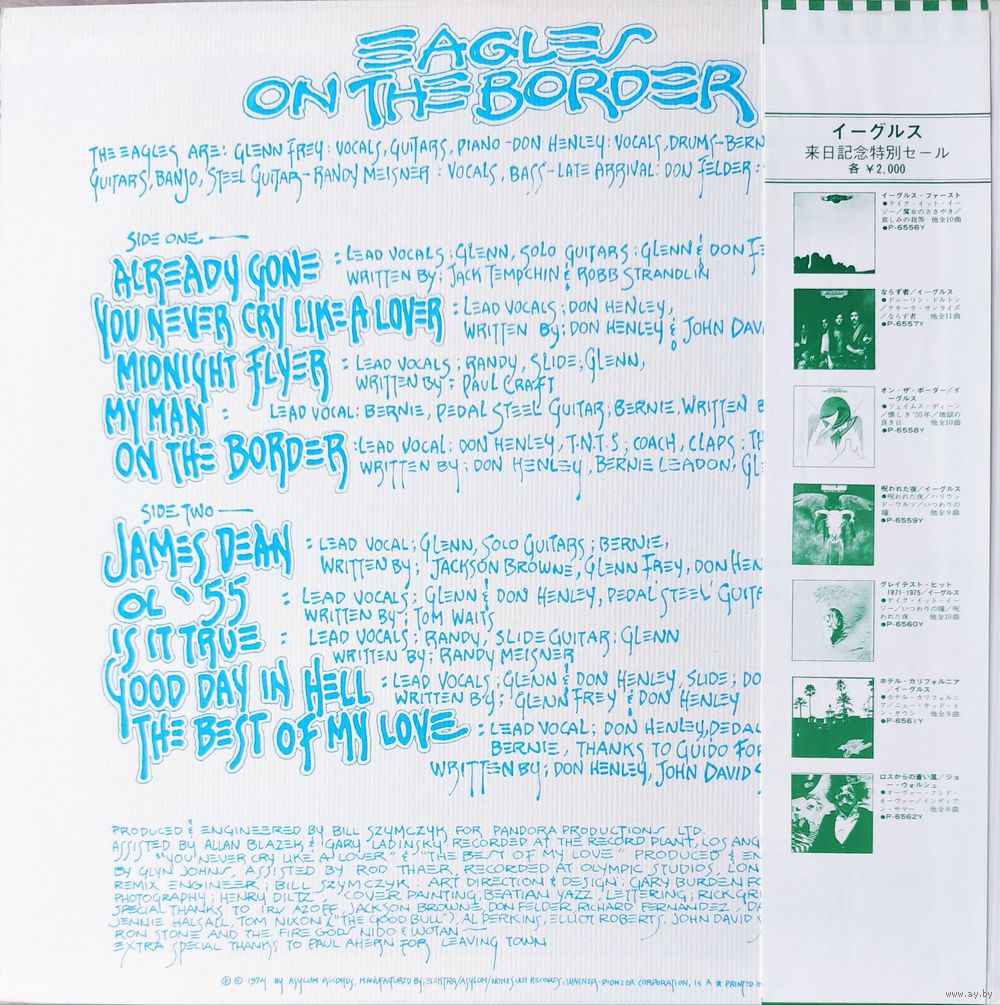 EAGLES
ON THE BORDER
THE EAGLES ARE: GLENN FREY: VOCALS, GUITARS, PIANO-DON HENLEY: VOCALS, DRUMS-BERN
GUITARS, BANJO, STEEL GUITAR-RANDY MEISNER: VOCALS, BASS-LATE ARRIVAL: DON FELDER:
SIDE ONE —
ALREADY GONE : LEAD VOCALS: GLENN, SOLO GUITARS: GLENN & DON FE
WRITTEN BY; JACK TEMPCHIN & ROBB STRANDLIN
YOU NEVER CRY LIKE A LOVER : LEAD VOCALS; DON HENLEY,
WRITTEN BY; DON HENLEY & JOHN DAVI
MIDNIGHT FLYER : LEAD VOCALS; RANDY, SLIDE; GLENN,
WRITTEN BY; PAUL CRAFT
MY MAN : LEAD VOCAL: BERNIE, PEDAL STEEL GUITAR; BERNIE, WRITTEN B
ON THE BORDER : LEAD VOCAL: DON HENLEY, T.N.T.S; COACH, CLAPS: TH
WRITTEN BY; DON HENLEY, BERNIE LEADON, GL
SIDE TWO —
JAMES DEAN : LEAD VOCAL; GLENN, SOLO GUITARS; BERNIE,
WRITTEN BY; JACKSON BROWNE, GLENN FREY, DON HEN
OL '55 : LEAD VOCALS; GLENN & DON HENLEY, PEDAL STEEL GUITA
WRITTEN BY; TOM WAITS
IS IT TRUE : LEAD VOCALS; RANDY, SLIDE GUITAR: GLENN
WRITTEN BY; RANDY MEISNER
GOOD DAY IN HELL : LEAD VOCALS; GLENN & DON HENLEY, SLIDE; DO
WRITTEN BY; GLENN FREY & DON HENLEY
THE BEST OF MY LOVE : LEAD VOCAL; DON HENLEY, PEDAL
BERNIE, THANKS TO GUIDO FOR
WRITTEN BY; DON HENLEY, JOHN DAVID S
PRODUCED & ENGINEERED BY BILL SZYMCZYK FOR PANDORA PRODUCTIONS LTD.
ASSISTED BY ALLAN BLAZEK & GARY LADINSKY RECORDED AT THE RECORD PLANT, LOS ANG
"YOU NEVER CRY LIKE A LOVER" & "THE BEST OF MY LOVE" PRODUCED & EN
BY GLYN JOHNS, ASSISTED BY ROD THAER, RECORDED AT OLYMPIC STUDIOS, LON
REMIX ENGINEER; BILL SZYMCZYK. ART DIRECTION & DESIGN; GARY BURDEN FO
PHOTOGRAPHY; HENRY DILTZ. COVER PAINTING; BEATIAN YAZZ, LETTERING; RICK GRI
SPECIAL THANKS TO IRV AZOFF, JACKSON BROWNE, DON FELDER, RICHARD FERNANDEZ, DA
JENNIE HALSALL, TOM NIXON ("THE GOOD BULL"), AL PERKINS, ELLIOT ROBERTS, JOHN DAVID S
RON STONE AND THE FIRE GODS NIDO & WOTAN —
EXTRA SPECIAL THANKS TO PAUL AHERN FOR LEAVING TOWN
℗ © 1974 BY ASYLUM RECORDS, MANUFACTURED BY; ELEKTRA/ASYLUM/NONESUCH RECORDS; WARNER-PIONEER CORPORATION, IS A ★ PRINTED IN
イーグルス
来日記念特別セール
各 ¥2,000
イーグルス・ファースト
●テイク・イット・イー
ジー/魔女のささやき/
哀しみの我等 他全10曲
●P-6556Y
ならず者/イーグルス
●ドゥーリン・ドルトン
/テキーラ・サンライズ
/ならず者 他全11曲
●P-6557Y
オン・ザ・ボーダー/イ
ーグルス
●ジェイムス・ディーン
/懐しき'55年/地獄の
良き日 他全10曲
●P-6558Y
呪われた夜/イーグルス
●呪われた夜/ハリウッ
ド・ワルツ/いつわりの
瞳 他全9曲
●P-6559Y
グレイテスト・ヒット
1971-1975/イーグルス
●テイク・イット・イー
ジー/いつわりの瞳/呪
われた夜 他全10曲
●P-6560Y
ホテル・カリフォルニア
/イーグルス
●ホテル・カリフォルニ
ア/ニュー・キッド・イ
ン・タウン 他全9曲
●P-6561Y
ロスからの蒼い風/ジョ
ー・ウォルシュ
●オーヴァー・アンド・
オーヴァー/インディア
ン・サマー 他全8曲
●P-6562Y
www.ay.by